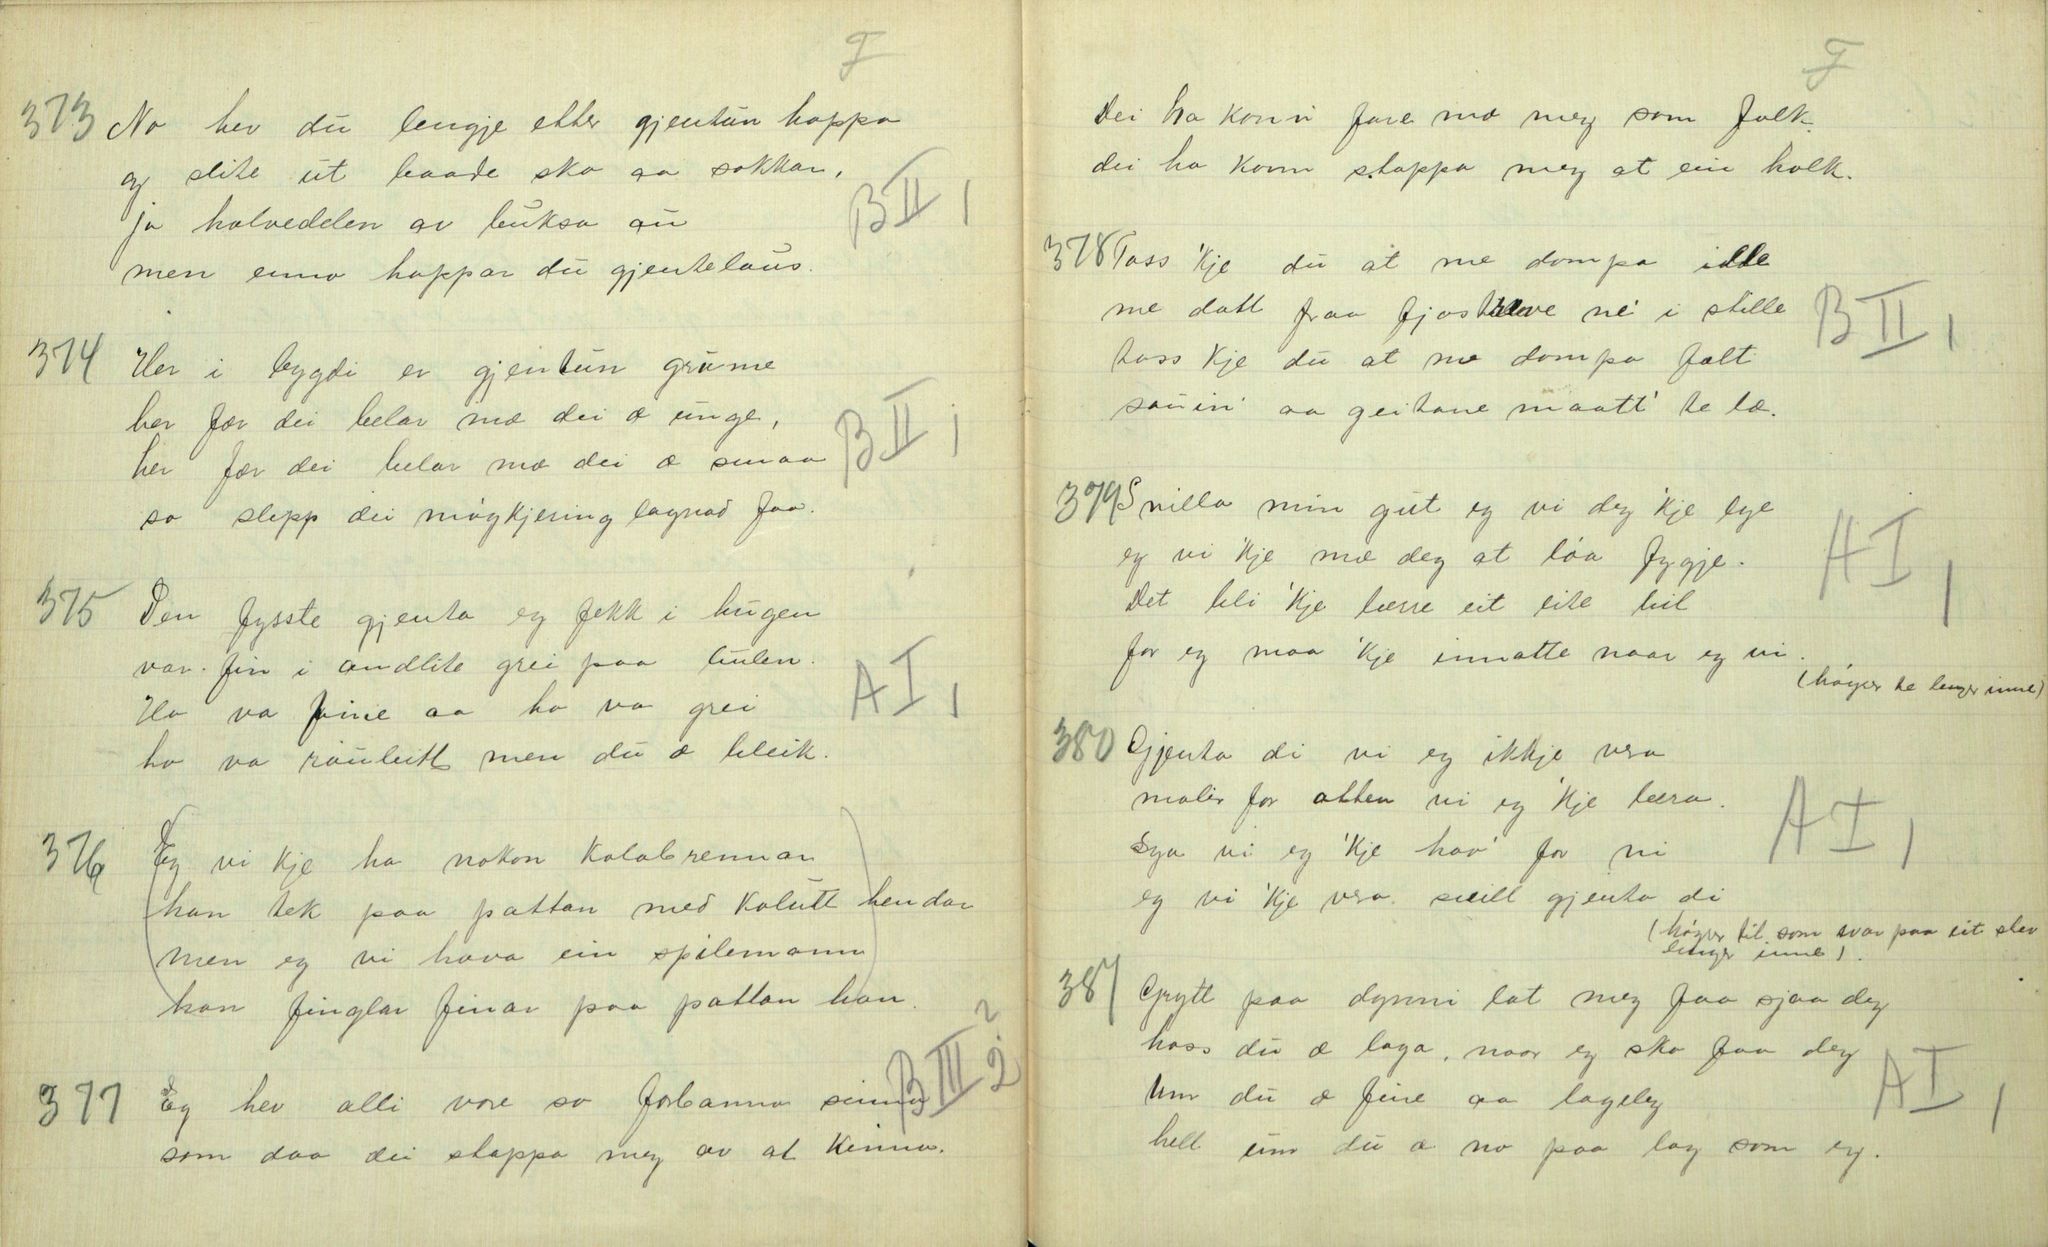 F
373 No hev du lengje etter gjentun hoppa
og slite ut baade sko aa sokkar,
ja halvedelen av buksa au
men enno hoppar du gjentelaus.
B II 1
374 Her i bygdi er gjentun grumme
her fær dei belar mæ dei æ unge,
her fær dei belar mæ dei æ smaa
so slepp dei møykjering lagnad faa.
B II 1
375 Den fysste gjenta eg fekk i hugen
var fin i andlite grei paa
Ho va fine aa ho va grei
ho va rauleitt men du æ bleik.
A I 1
376 Eg vi kje ha nokon Kolabrennar
han tek paa pattan med Kolutt hendar
men eg vi hava ein spilemann
han finglar finar paa pattan han.
B III 2 ?
377 Eg hev alli vore so forbanna sinna
som daa dei stappa meg av at Kinna.
F
Dei ha konn fare mæ meg som folk
dei ha konn stappa meg at ein holk.
378 Tass 'kje du at me dompa idde
me datt fraa fjostreve ne i stille
tass kje du at me dompa fælt
sauin' aa geitane maatt' te læ.
B II 1
379 Snilla min gut eg vi deg 'kje lye
eg vi 'kje mæ deg at løa fygje.
Det bli 'kje bærre eit lite bil
for eg maa 'kje innatte naar eg vi.
(høyrer te lenger inne)
A I 1
380 Gjenta di vi eg ikkje vera
moler for atten vi eg 'kje bæra.
Sya vi eg 'kje hav' for ni
eg vi 'kje vera snill gjenta di
(høyrer til som svar paa eit stev
lenger inne).
A I 1
381 Grytt paa dynni lat meg faa sjaa deg
hoss du æ laga, naar eg ska faa deg
Um du æ fine aa lageleg
hell um du æ no paa lag som eg.
A I 1